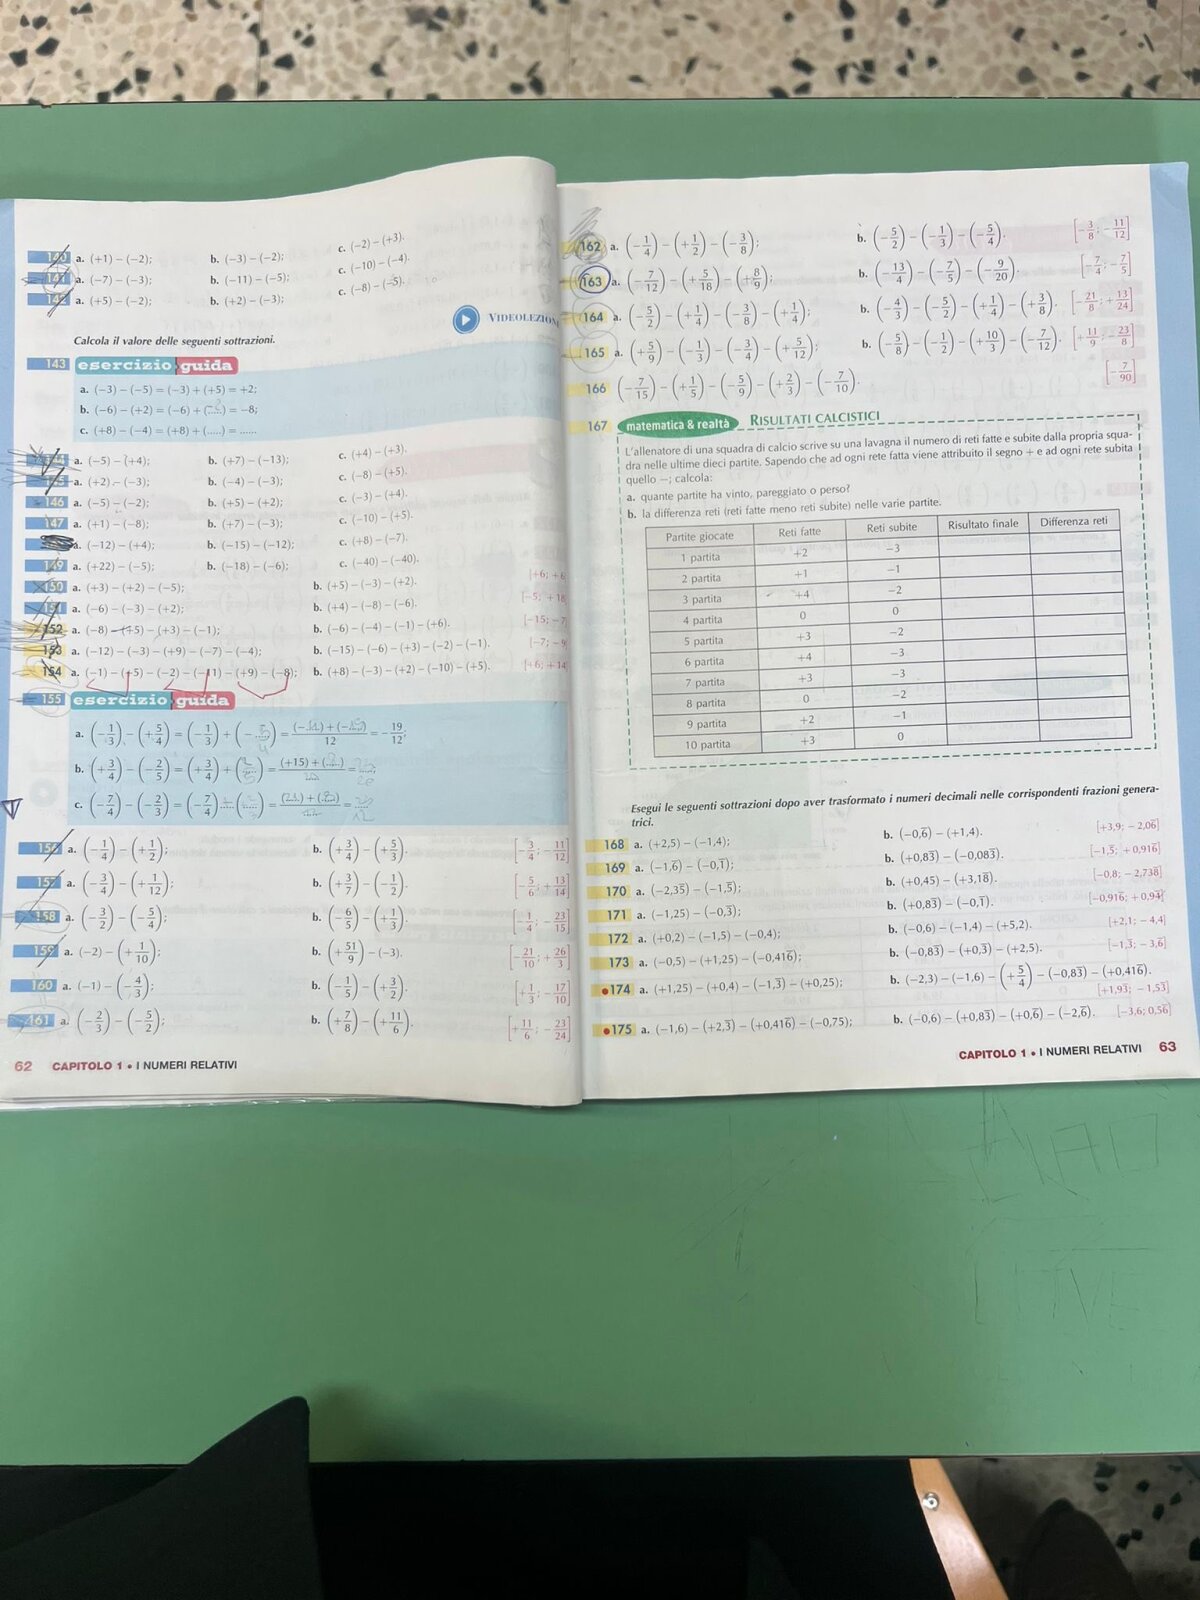 140 a. (+1) − (−2); b. (−3) − (−2); c. (−2) − (+3).
141 a. (−7) − (−3); b. (−11) − (−5); c. (−10) − (−4).
142 a. (+5) − (−2); b. (+2) − (−3); c. (−8) − (−5).
VIDEOLEZION
Calcola il valore delle seguenti sottrazioni.
143 esercizio guida
a. (−3) − (−5) = (−3) + (+5) = +2;
b. (−6) − (+2) = (−6) + (.....) = −8;
c. (+8) − (−4) = (+8) + (.....) = ......
a. (−5) − (+4); b. (+7) − (−13); c. (+4) − (+3).
a. (+2) − (−3); b. (−4) − (−3); c. (−8) − (+5).
146 a. (−5) − (−2); b. (+5) − (+2); c. (−3) − (+4).
147 a. (+1) − (−8); b. (+7) − (−3); c. (−10) − (+5).
a. (−12) − (+4); b. (−15) − (−12); c. (+8) − (−7).
149 a. (+22) − (−5); b. (−18) − (−6); c. (−40) − (−40).
150 a. (+3) − (+2) − (−5); b. (+5) − (−3) − (+2). [+6; +6
151 a. (−6) − (−3) − (+2); b. (+4) − (−8) − (−6). [−5; +18
152 a. (−8) − (+5) − (+3) − (−1); b. (−6) − (−4) − (−1) − (+6). [−15; −7
153 a. (−12) − (−3) − (+9) − (−7) − (−4); b. (−15) − (−6) − (+3) − (−2) − (−1). [−7; −9
154 a. (−1) − (+5) − (−2) − (−11) − (+9) − (−8); b. (+8) − (−3) − (+2) − (−10) − (+5). [+6; +14
155 esercizio guida
a. (−1/3) − (+5/4) = (−1/3) + (−5/4) = (−.....) + (−.....)/12 = −19/12;
b. (+3/4) − (−2/5) = (+3/4) + (2/5) = (+15) + (.....)/.....
c. (−7/4) − (−2/3) = (−7/4) ..... (.....) = (.....) + (.....)/..... = .....
156 a. (−1/4) − (+1/2); b. (+3/4) − (+5/3). [−3/4; −11/12]
157 a. (−3/4) − (+1/12); b. (+3/7) − (−1/2). [−5/6; +13/14]
158 a. (−3/2) − (−5/4); b. (−6/5) − (+1/3). [−1/4; −23/15]
159 a. (−2) − (+1/10); b. (+51/9) − (−3). [−21/10; +26/3]
160 a. (−1) − (−4/3); b. (−1/5) − (+3/2). [+1/3; −17/10]
161 a. (−2/3) − (−5/2); b. (+7/8) − (+11/6). [+11/6; −23/24]
62 CAPITOLO 1 • I NUMERI RELATIVI
162 a. (−1/4) − (+1/2) − (−3/8); b. (−5/2) − (−1/3) − (−5/4). [−3/8; −11/12]
163 a. (−7/12) − (+5/18) − (+8/9); b. (−13/4) − (−7/5) − (−9/20). [−7/4; −7/5]
164 a. (−5/2) − (+1/4) − (−3/8) − (+1/4); b. (−4/3) − (−5/2) − (+1/4) − (+3/8). [−21/8; +13/24]
165 a. (+5/9) − (−1/3) − (−3/4) − (+5/12); b. (−5/8) − (−1/2) − (+10/3) − (−7/12). [+11/9; −23/8]
166 (−7/15) − (+1/5) − (−5/9) − (+2/3) − (−7/10). [−7/90]
167 matematica & realtà RISULTATI CALCISTICI
L'allenatore di una squadra di calcio scrive su una lavagna il numero di reti fatte e subite dalla propria squa-
dra nelle ultime dieci partite. Sapendo che ad ogni rete fatta viene attribuito il segno + e ad ogni rete subita
quello −; calcola:
a. quante partite ha vinto, pareggiato o perso?
b. la differenza reti (reti fatte meno reti subite) nelle varie partite.
Partite giocate Reti fatte Reti subite Risultato finale Differenza reti
1 partita +2 −3
2 partita +1 −1
3 partita +4 −2
4 partita 0 0
5 partita +3 −2
6 partita +4 −3
7 partita +3 −3
8 partita 0 −2
9 partita +2 −1
10 partita +3 0
Esegui le seguenti sottrazioni dopo aver trasformato i numeri decimali nelle corrispondenti frazioni genera-
trici.
168 a. (+2,5) − (−1,4); b. (−0,6̅) − (+1,4). [+3,9; −2,06̅]
169 a. (−1,6̅) − (−0,1̅); b. (+0,83̅) − (−0,083̅). [−1,5̅; +0,916̅]
170 a. (−2,35̅) − (−1,5̅); b. (+0,45) − (+3,18̅). [−0,8; −2,738̅]
171 a. (−1,25) − (−0,3̅); b. (+0,83̅) − (−0,1̅). [−0,916̅; +0,94̅]
172 a. (+0,2) − (−1,5) − (−0,4); b. (−0,6) − (−1,4) − (+5,2). [+2,1; −4,4]
173 a. (−0,5) − (+1,25) − (−0,416̅); b. (−0,83̅) − (+0,3̅) − (+2,5). [−1,3̅; −3,6̅]
•174 a. (+1,25) − (+0,4) − (−1,3̅) − (+0,25); b. (−2,3) − (−1,6) − (+5/4) − (−0,83̅) − (+0,416̅).
[+1,93̅; −1,53̅]
•175 a. (−1,6) − (+2,3̅) − (+0,416̅) − (−0,75); b. (−0,6) − (+0,83̅) − (+0,6̅) − (−2,6̅). [−3,6; 0,56̅]
CAPITOLO 1 • I NUMERI RELATIVI 63